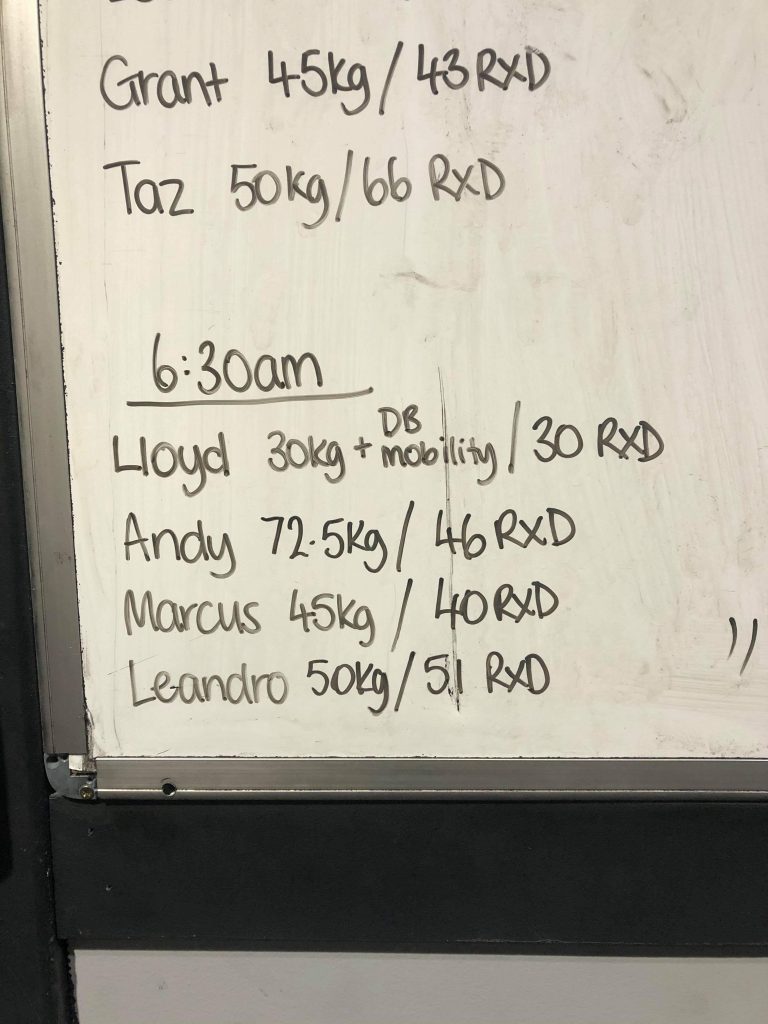 Grant 45kg / 43 RXD
Taz 50kg / 66 RXD
6:30am
Lloyd 30kg + DB mobility / 30 RXD
Andy 72.5kg / 46 RXD
Marcus 45kg / 40 RXD
Leandro 50kg / 51 RXD